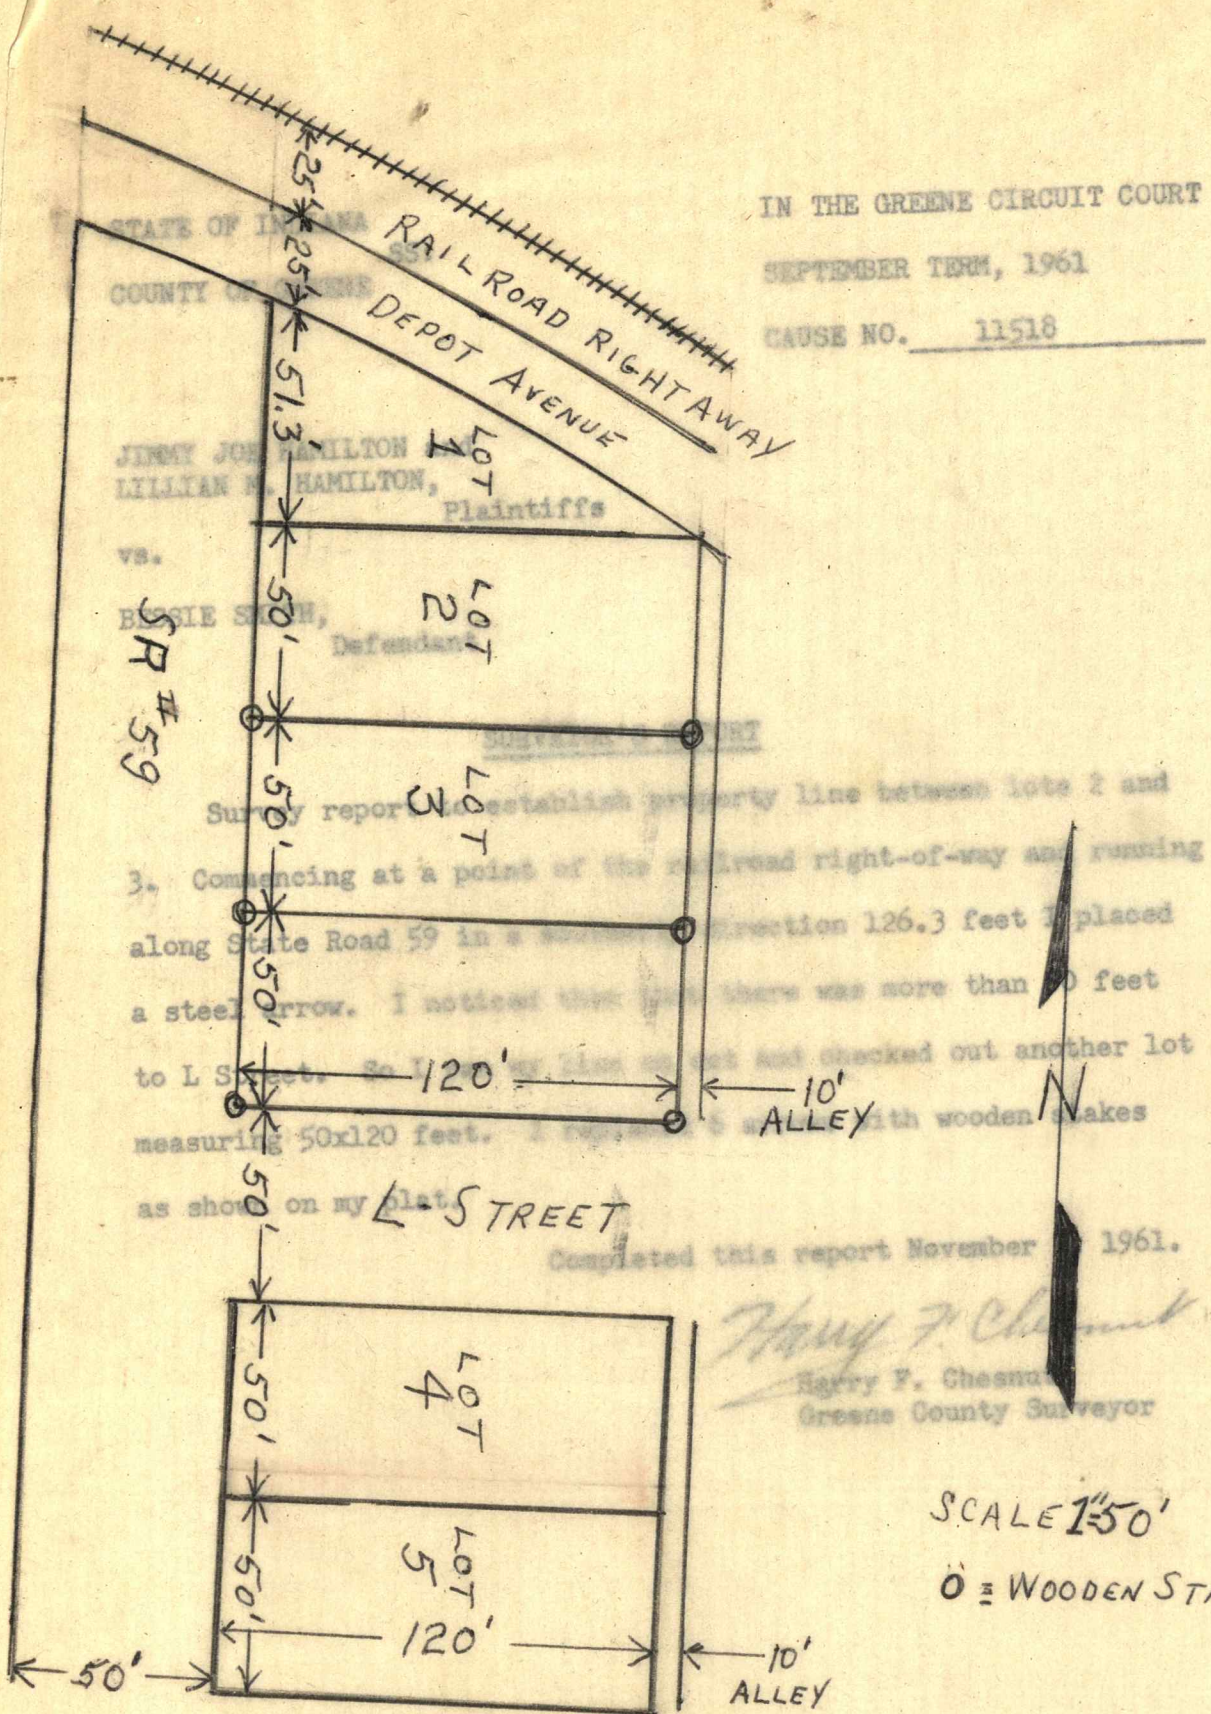 STATE OF INDIANA
SS:
COUNTY OF GREENE
IN THE GREENE CIRCUIT COURT
SEPTEMBER TERM, 1961
CAUSE NO. 11518
JIMMY JOE HAMILTON and
LILLIAN M. HAMILTON,
Plaintiffs
vs.
BESSIE SMITH,
Defendant
SURVEYOR'S REPORT
Survey report to establish property line between lots 2 and
3. Commencing at a point of the railroad right-of-way and running
along State Road 59 in a direction 126.3 feet I placed
a steel arrow. I noticed then that there was more than 50 feet
to L Street. So I my line and checked out another lot
measuring 50x120 feet. I 6 with wooden stakes
as shown on my plat.
Completed this report November 1961.
Harry F. Chesnut
Harry F. Chesnut
Greene County Surveyor
25'
25'
RAILROAD RIGHTAWAY
DEPOT AVENUE
51.3'
LOT
1
50'
LOT
2
SR # 59
50'
LOT
3
50'
120'
10'
ALLEY
N
50'
L-STREET
50'
LOT
4
50'
LOT
5
120'
10'
ALLEY
50'
SCALE 1"=50'
O = WOODEN